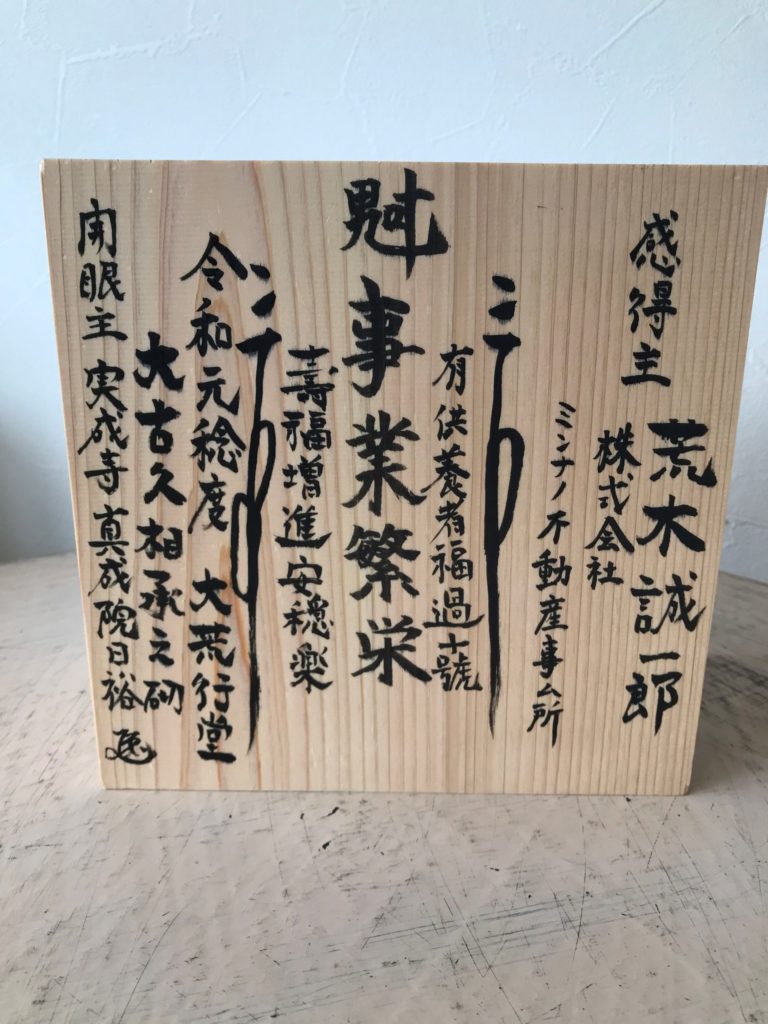 感得主
荒木誠一郎
株式会社
ミンナノ不動産事ム所
有供養者福過十號
事業繁栄
壽福増進安穏楽
令和元稔度 大荒行堂
大古久相承之砌
開眼主 実成寺真成院日裕